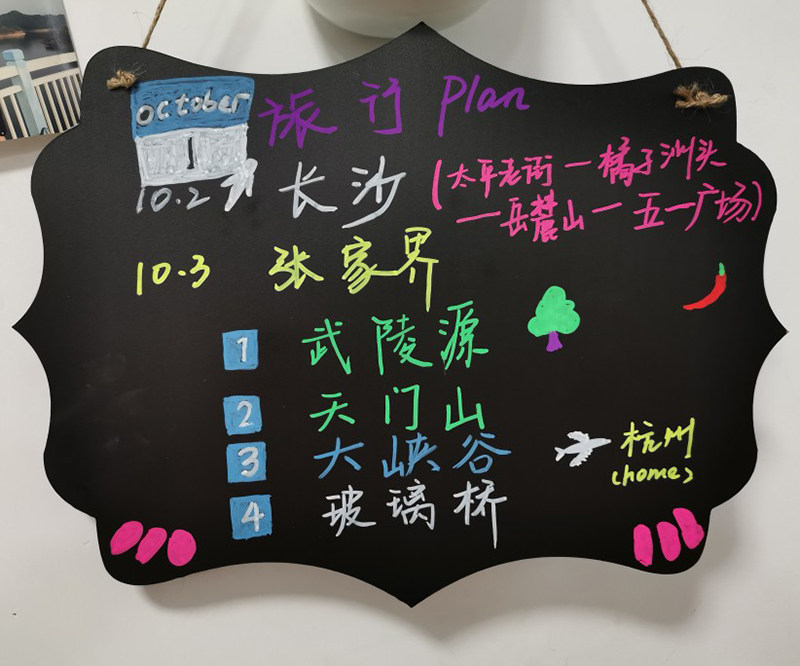 October
1
旅行 Plan
10.2 到 长沙 (太平老街一橘子洲头
一岳麓山一五一广场)
10.3 张家界
1 武陵源
2 天门山
3 大峡谷
4 玻璃桥
杭州
(home)